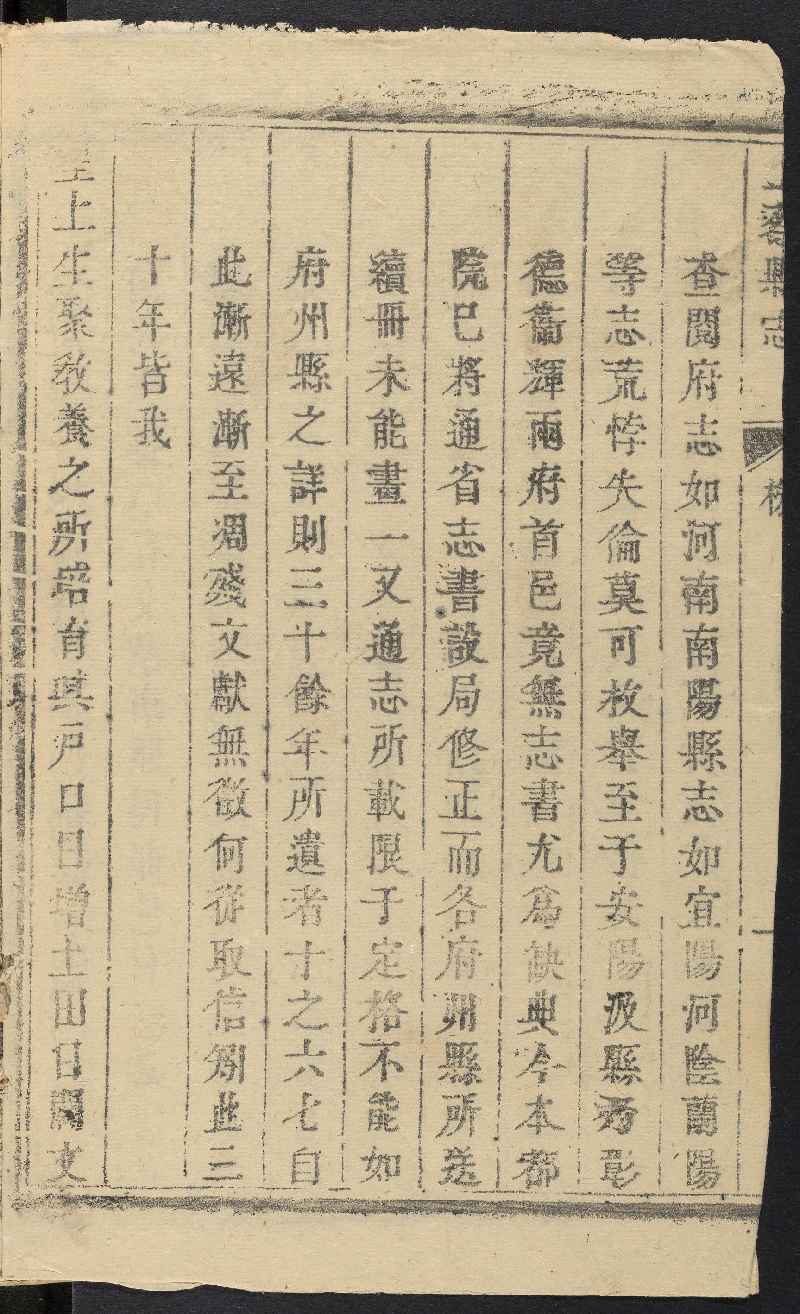 上蔡縣志
查閱府志如河南南陽縣志如宜陽河陰蘭陽
等志荒悖失倫莫可枚舉至于安陽汲縣乃彰
德衞輝兩府首邑竟無志書尤為缺典今本都
院已將通省志書設局修正而各府州縣所送
續冊未能畫一又通志所載限于定格不能如
府州縣之詳則三十餘年所遺者十之六七自
此漸遠漸至凋殘文獻無徵何從取信矧此三
十年皆我
皇上生聚教養之所培育其戶口日增土田日闢文